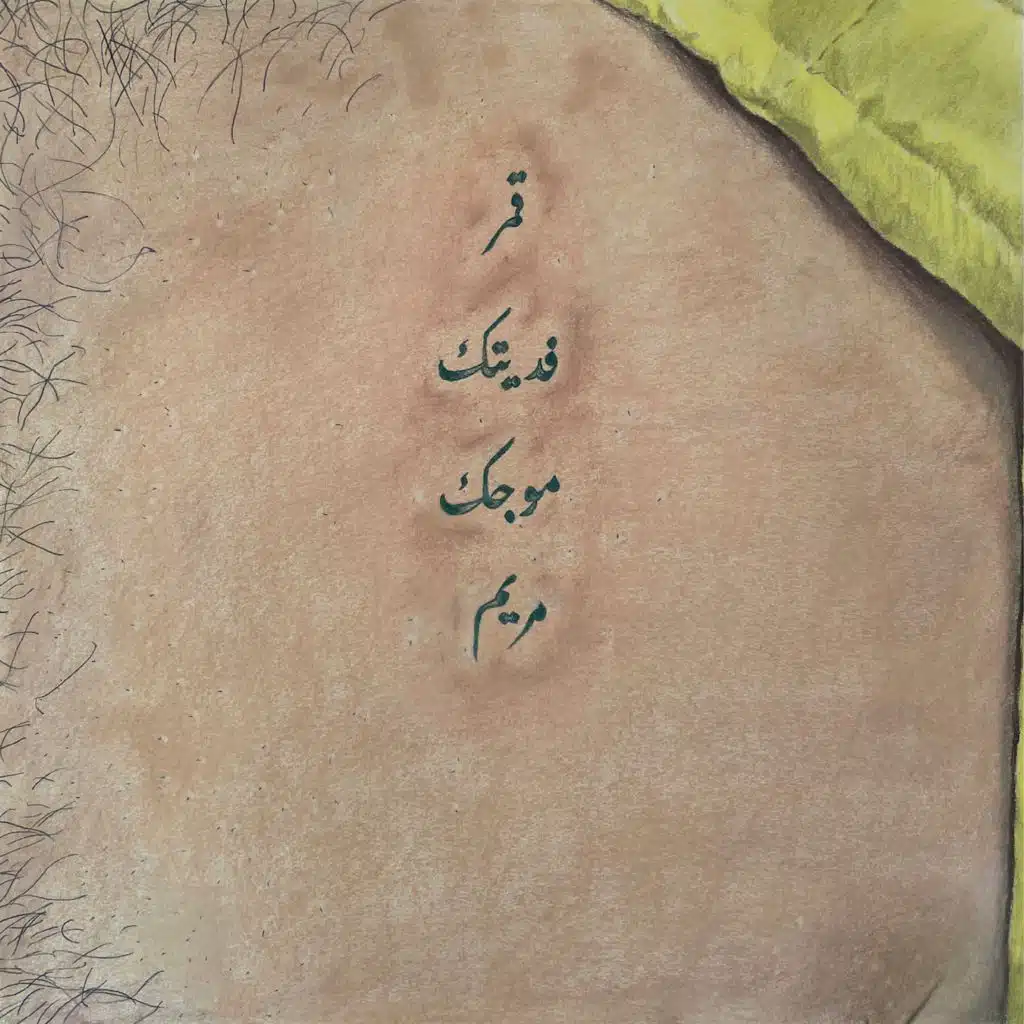 قمر
فديتك
موجك
مريم